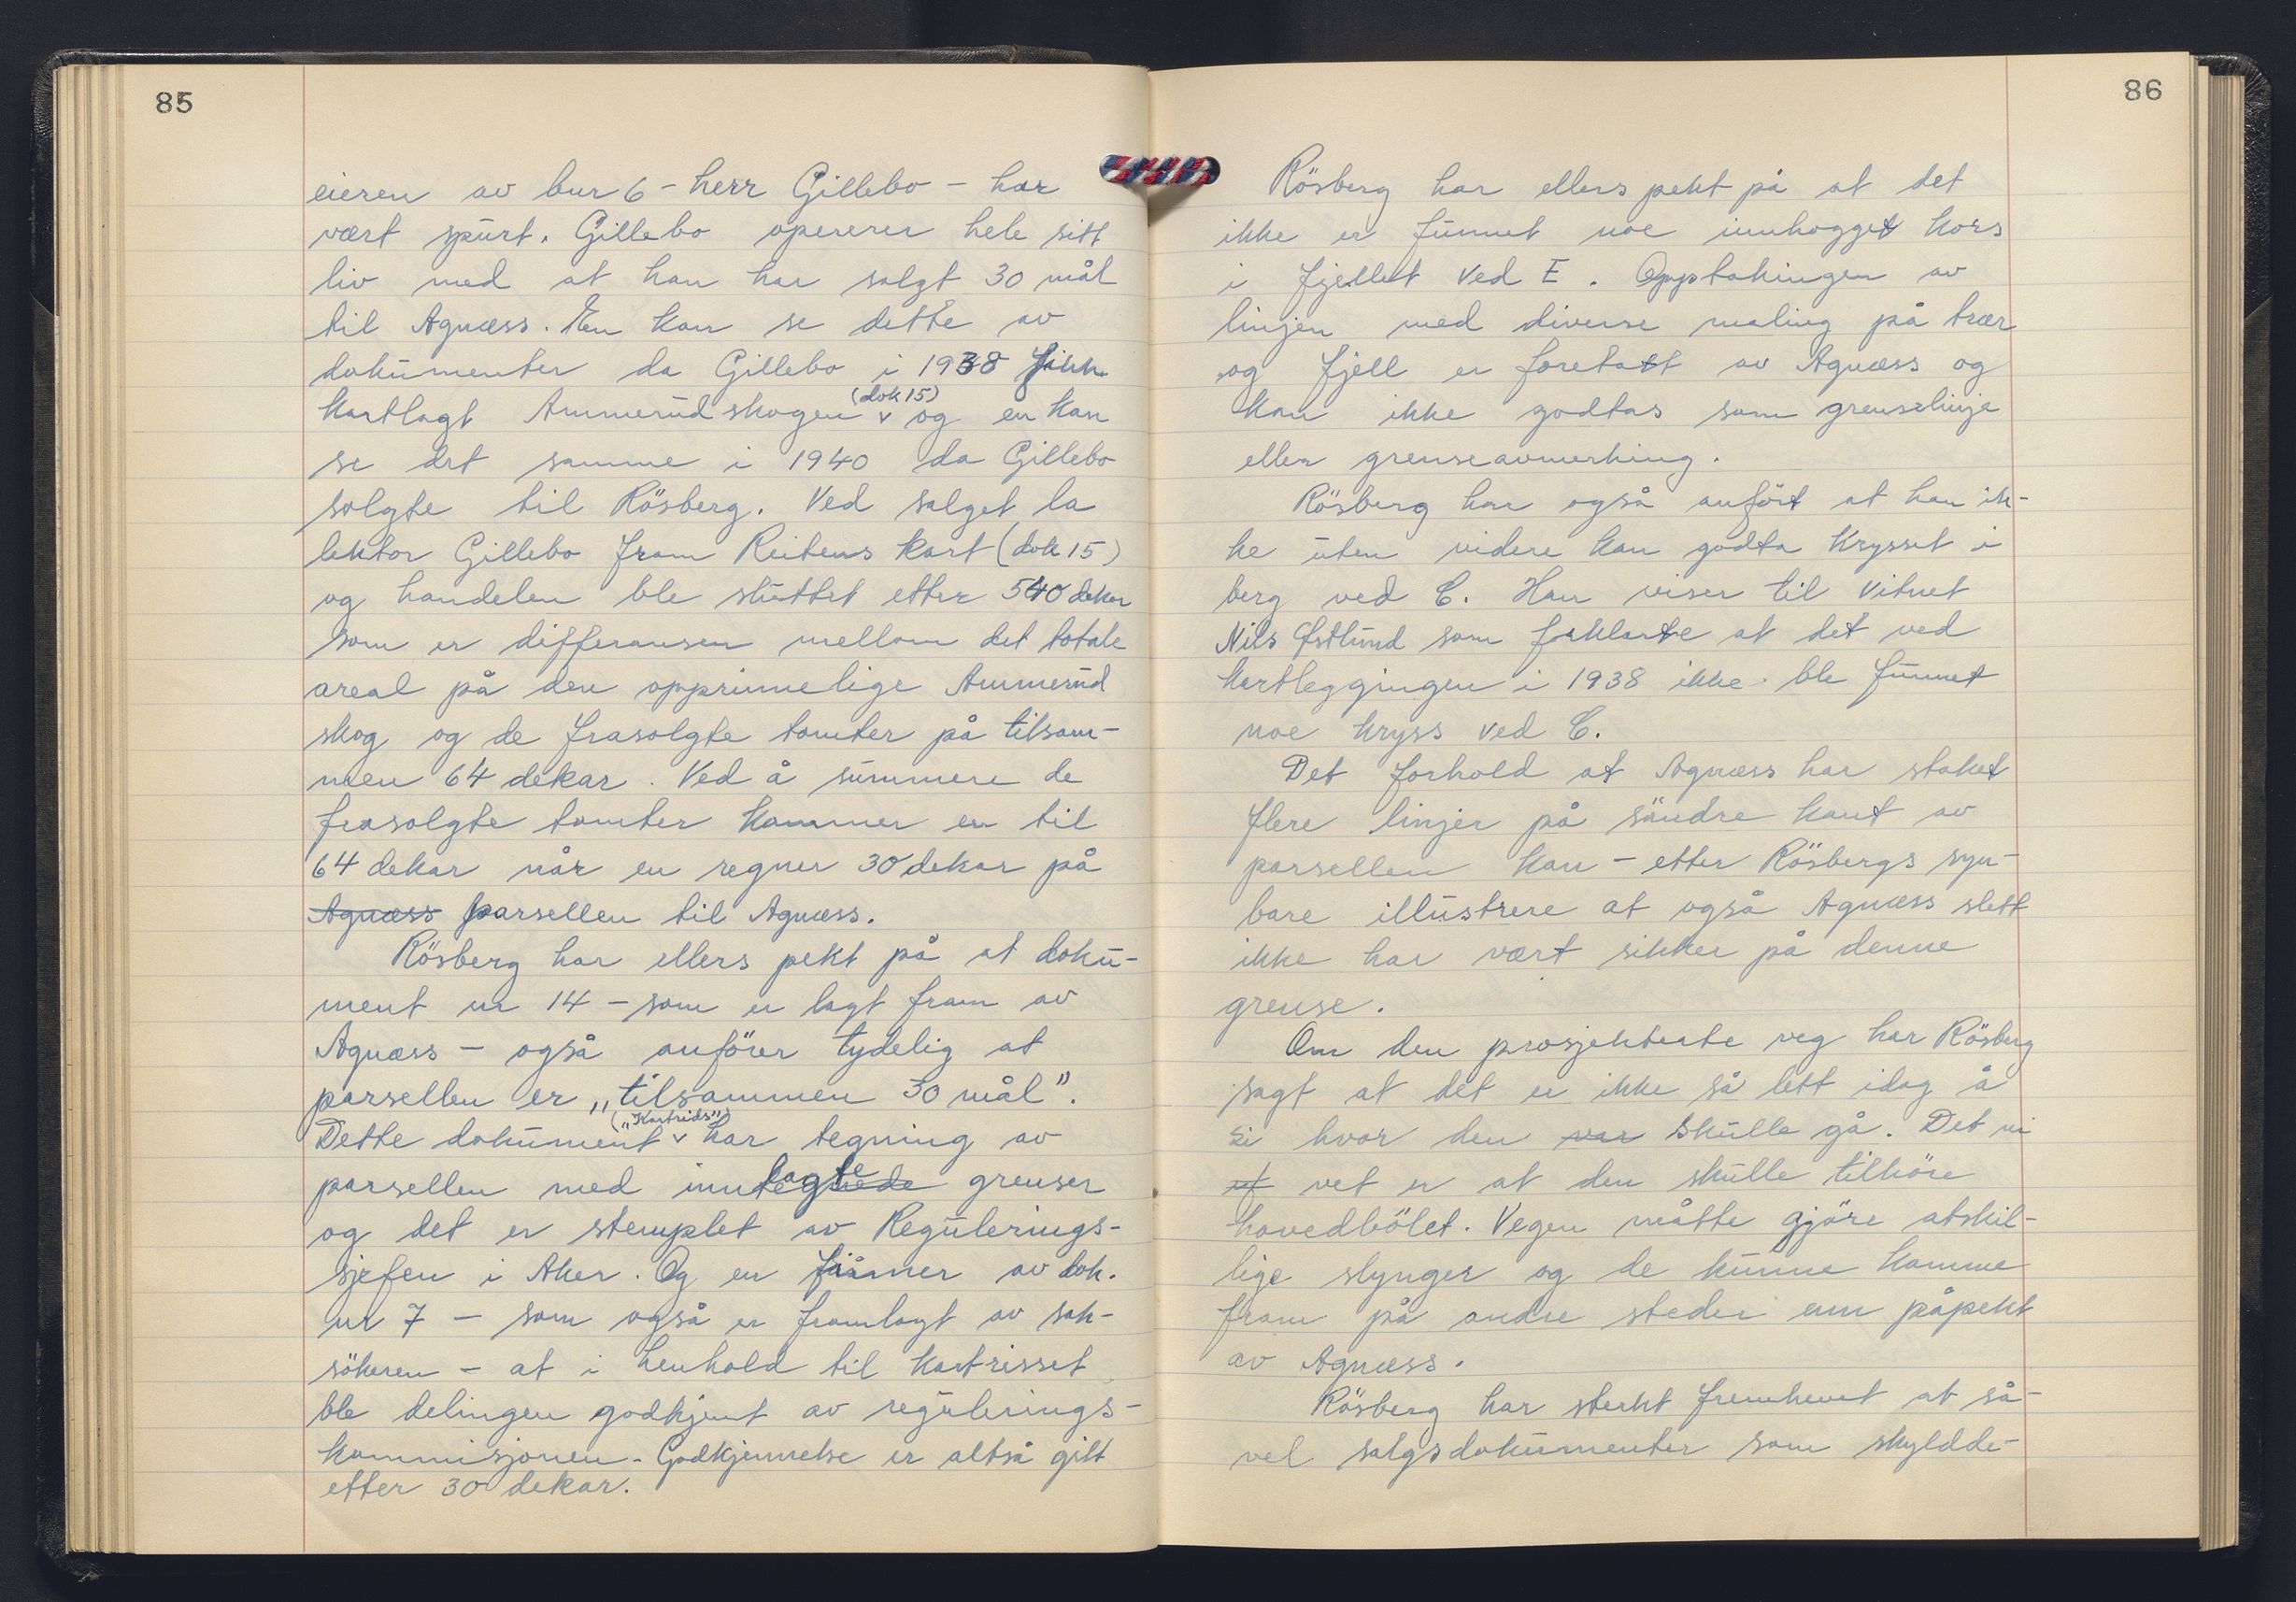 85
eieren av bnr 6 - herr Gillebo - har
vært spurt. Gillebo opererer hele sitt
liv med at han har solgt 30 mål
til Agnæss. En kan se dette av
dokumenter da Gillebo i 1938 fikk
kartlagt Ammerudskogen (dok 15) og en kan
se det samme i 1940 da Gillebo
solgte til Rösberg. Ved salget la
lektor Gillebo fram Reitens kart (dok 15)
og handelen ble sluttet etter 540 dekar
som er differansen mellom det totale
areal på den opprinnelige Ammerud
skog og de frasolgte tomter på tilsam-
men 64 dekar. Ved å summere de
frasolgte tomter kommer en til
64 dekar når en regner 30 dekar på
Agnæss parsellen til Agnæss.
Rösberg har ellers pekt på at doku-
ment nr 14 - som er lagt fram av
Agnæss - også anförer tydelig at
parsellen er „tilsammen 30 mål".
Dette dokument („Kartrids") har tegning av
parsellen med inntegnede lagte grenser
og det er stemplet av Regulerings-
sjefen i Aker. Og en finner av dok.
nr 7 - som også er framlagt av sak-
sökeren - at i henhold til kartrisset
ble delingen godkjent av regulerings-
kommisjonen. Godkjennelse er altså gitt
etter 30 dekar.
86
Rösberg har ellers pekt på at det
ikke er funnet noe innhogget kors
i fjellet ved E. Opptakingen av
linjen med diverse maling på trær
og fjell er foretatt av Agnæss og
kan ikke godtas som grenselinje
eller grenseavmerking.
Rösberg har også anfört at han ik-
ke uten videre kan godta krysset i
berg ved C. Han viser til vitnet
Nils Østlund som forklarte at det ved
kartleggingen i 1938 ikke ble funnet
noe kryss ved C.
Det forhold at Agnæss har staket
flere linjer på söndre kant av
parsellen kan - etter Rösbergs syn -
bare illustrere at også Agnæss slett
ikke har vært sikker på denne
grense.
Om den prosjekterte veg har Rösberg
sagt at det er ikke så lett idag å
si hvor den var skulle gå. Det vi
vet er at den skulle tilhöre
hovedbölet. Vegen måtte gjöre atskil-
lige slynger og de kunne komme
fram på andre steder enn påpekt
av Agnæss.
Rösberg har sterkt fremhevet at så-
vel salgsdokumenter som skyldde-